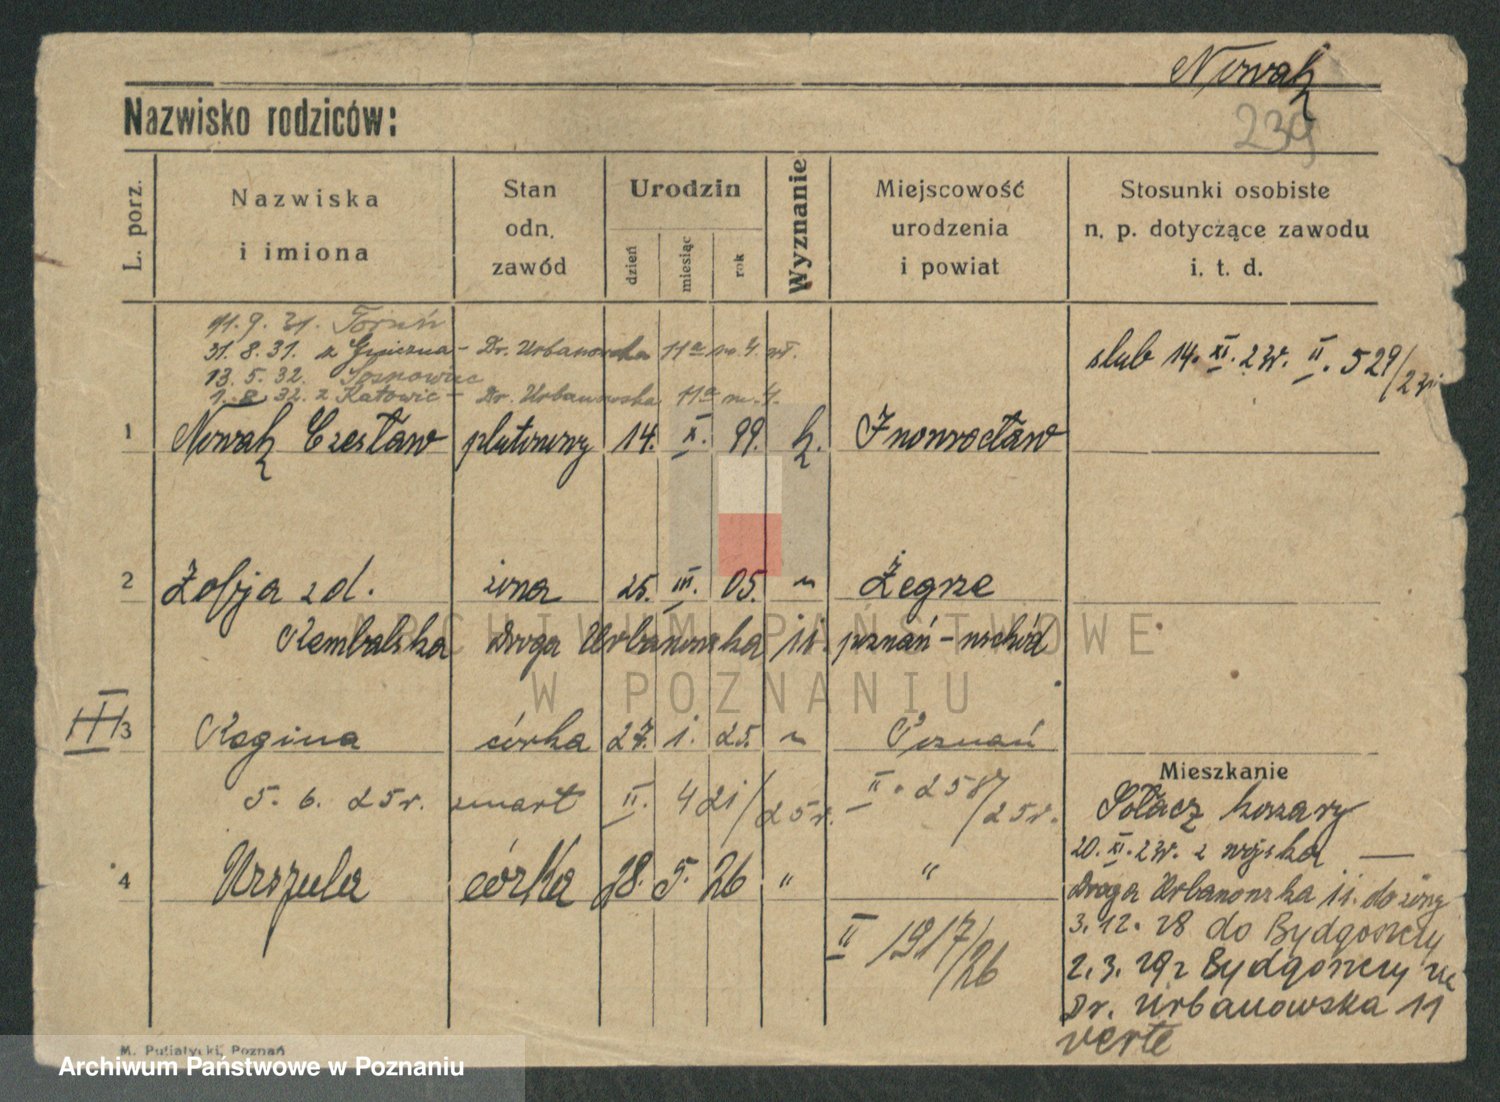 Nowak
239
Nazwisko rodziców:
L. porz.
Nazwiska
i imiona
Stan
odn.
zawód
Urodzin
dzień
miesiąc
rok
Wyznanie
Miejscowość
urodzenia
i powiat
Stosunki osobiste
n. p. dotyczące zawodu
i. t. d.
11. 9. 31. Toruń
31. 8. 31. z - Dr. Urbanowska 11a m. 4.
13. 5. 32. Sosnowiec
1. 8. 32. z Katowic - Dr. Urbanowska 11a m. 4.
slub 14. XI. 23r. II. 529/23r.
1 Nowak Czesław plutonowy 14. X. 99. k. Inowrocław
2 Zofja z d. żona 25. III. 05. " Żegrze
Kembalska Droga Urbanowska 11. poznań-wschód
III
3 Regina córka 27. 1. 25. " Poznań
5. 6. 25r. zmart II. 421/25r. II. 2587/25r.
4 Urszula córka 28. 5. 26 " "
II 1917/26
Mieszkanie
Sołacz koszary
20. XI. 23r. z wojska —
Droga Urbanowska 11. do żony
3. 12. 28 do Bydgoszczy
2. 3. 29 z Bydgoszczy
Dr. Urbanowska 11
verte
M. Putiatycki, Poznań
ARCHIWUM PAŃSTWOWE
W POZNANIU
Archiwum Państwowe w Poznaniu